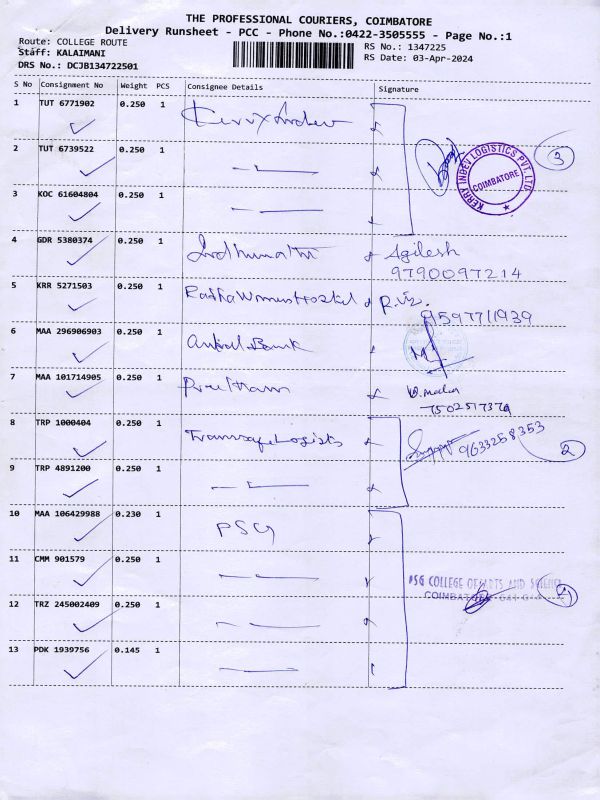 THE PROFESSIONAL COURIERS, COIMBATORE
Delivery Runsheet - PCC - Phone No.:0422-3505555 - Page No.:1
Route: COLLEGE ROUTE
RS No.: 1347225
Staff: KALAIMANI
RS Date: 03-Apr-2024
DRS No.: DCJB134722501
S No Consignment No Weight PCS Consignee Details Signature
1 TUT 6771902 0.250 1
2 TUT 6739522 0.250 1
KERRY INDEV LOGISTICS PVT. LTD.
COIMBATORE
3
3 KOC 61604804 0.250 1
4 GDR 5380374 0.250 1 Agilesh
9790097214
5 KRR 5271503 0.250 1 Radha Womens Hostel
9597711939
6 MAA 296906903 0.250 1 Bank
7 MAA 101714905 0.250 1 Preetham
7502517379
8 TRP 1000404 0.250 1 Transafe Logists
9633258353
2
9 TRP 4891200 0.250 1
10 MAA 106429988 0.230 1 PSG
11 CMM 901579 0.250 1
PSG COLLEGE OF ARTS AND SCIENCE
COIMBATORE
12 TRZ 245002409 0.250 1
13 PDK 1939756 0.145 1